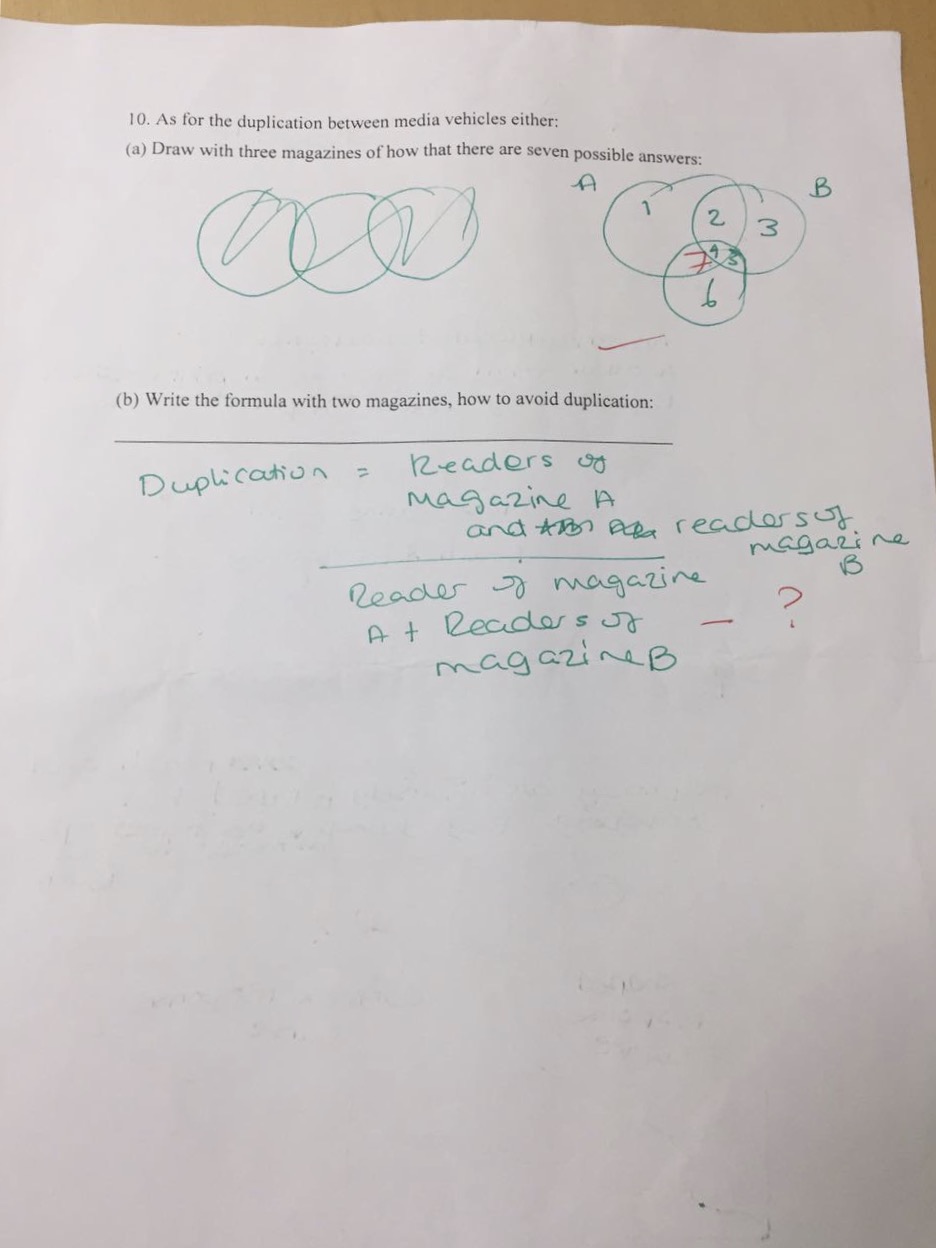 10. As for the duplication between media vehicles either:
(a) Draw with three magazines of how that there are seven possible answers:
A
B
1
2
3
7
4
5
6
(b) Write the formula with two magazines, how to avoid duplication:
Duplication = Readers of
magazine A
and readers of
magazine
B
Reader of magazine
A + Readers of
magazine B
- ?